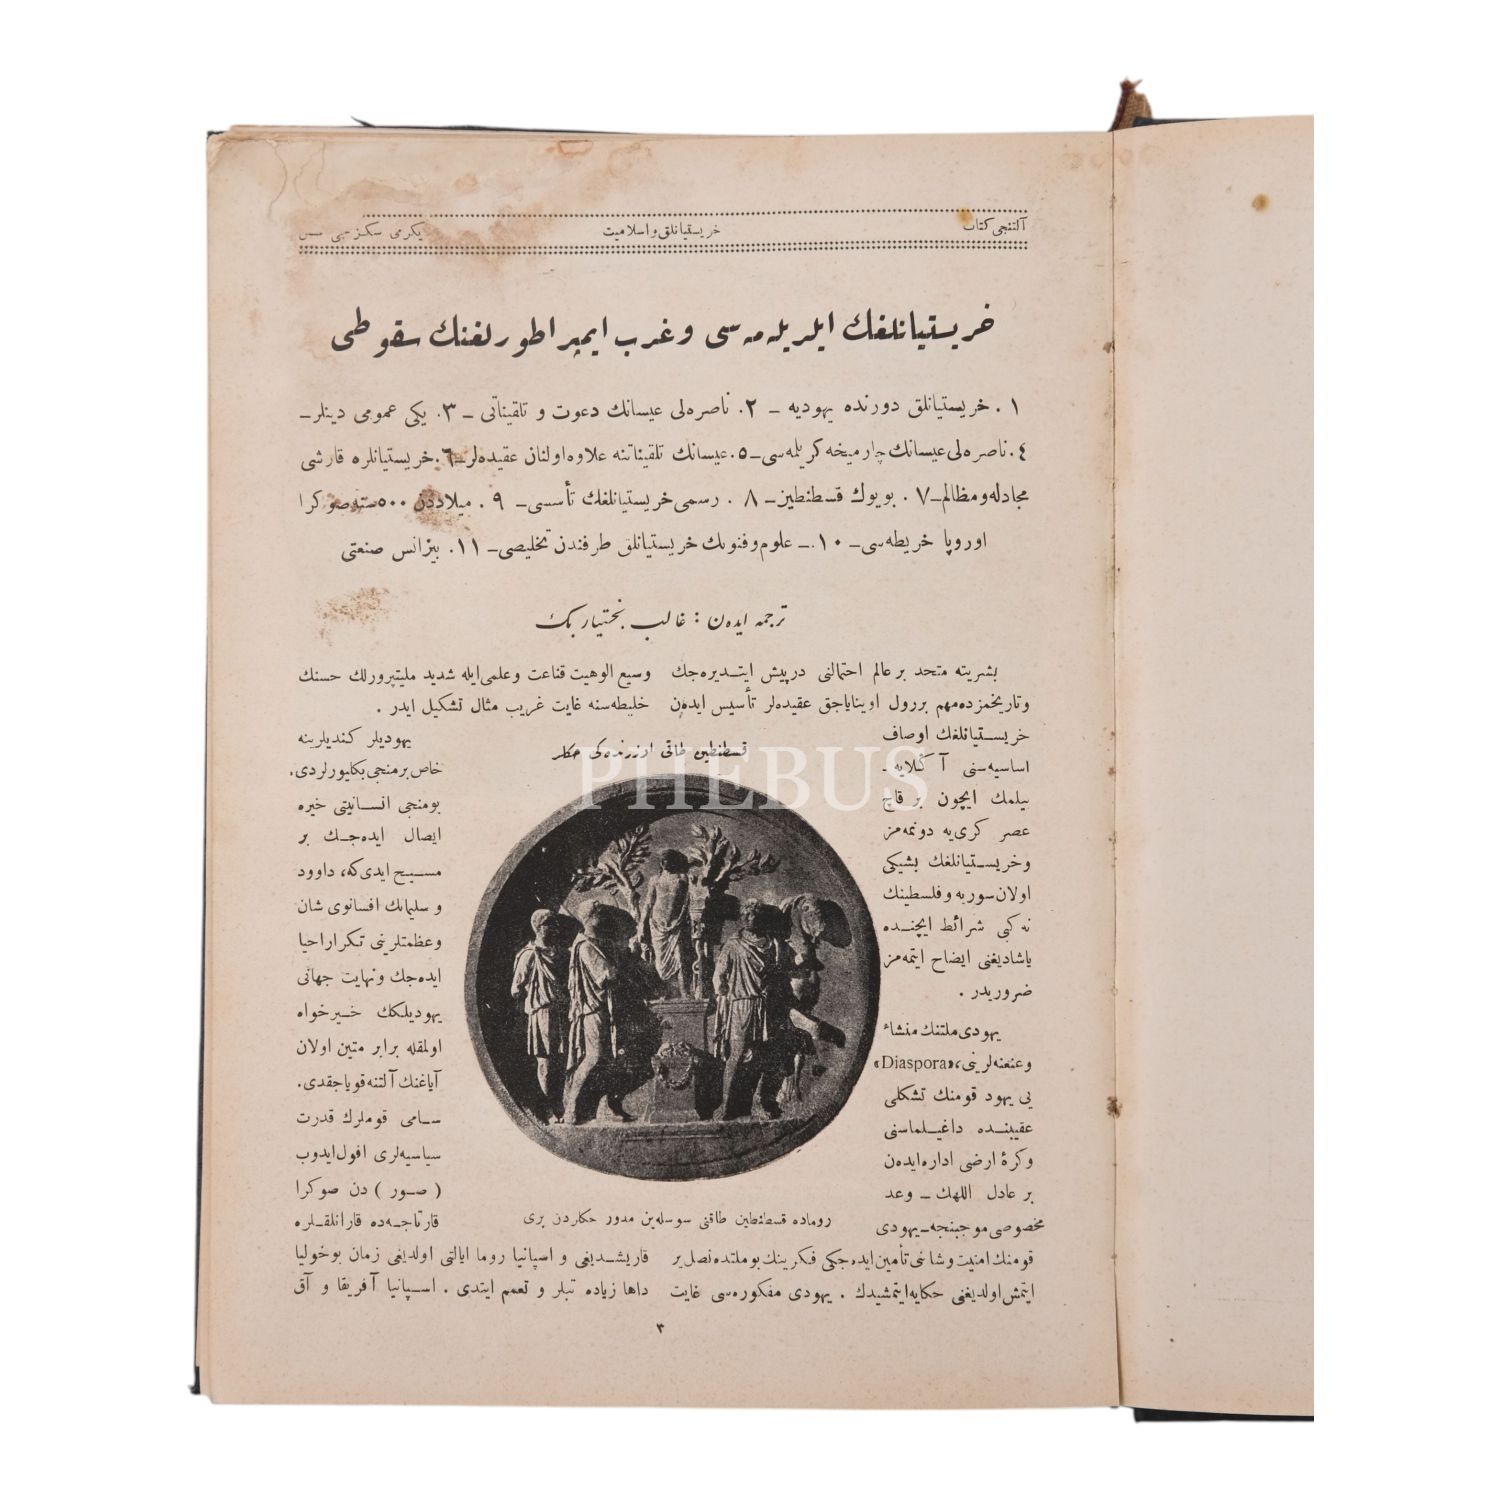 آلتنجی کتاب
خریستیانلق و اسلامیت
یکرمی سکزنجی
خریستیانلغك ایلریله مه سی و غرب ایمپراطورلغنك سقوطی
١ . خریستیانلق دورنده یهودیه – ٢. ناصره لی عیسانك دعوت و تلقیناتی – ٣. یکی عمومی دینلر –
٤. ناصره لی عیسانك چارمیخه کریلمه سی – ٥. عیسانك تلقیناتنه علاوه اولنان عقیده لر – ٦. خریستیانلره قارشی
مجادله و مظالم – ٧. بویوك قسطنطین – ٨ . رسمی خریستیانلغك تأسسی – ٩ . میلاددن ٥٠٠ سنه صوکرا
اوروپا خریطه سی – ١٠. – علوم و فنونك خریستیانلق طرفندن تخلیصی – ١١. بیزانس صنعتی
ترجمه ایده ن : غالب بختیار بك
بشریته متحد بر عالم احتمالنی درپیش ایتدیره جك
و تاریخمزده مهم بر رول اوینایاجق عقیده لر تأسیس ایده ن
خریستیانلغك اوصاف
اساسیه سنی آ کلایه –
بیلمك ایچون بر قاچ
عصر کری یه دونمه مز
و خریستیانلغك بشیکی
اولان سوریه و فلسطینك
نه کبی شرائط ایچنده
یاشادیغنی ایضاح ایتمه مز
ضروریدر .
یهودی ملتنك منشاء
و عنعنه لرینی، «Diaspora»
یی یهود قومنك تشکلی
عقیبنده داغیلماسنی
و کرۀ ارضی اداره ایده ن
بر عادل اللهك – وعد
مخصوصی موجبنجه – یهودی
قومنك امنیت و شاننی تأمین ایده جکی فکرینك بو ملتده نصل یر
ایتمش اولدیغنی حکایه ایتمشیدك . یهودی مفکوره سی غایت
وسیع الوهیت قناعت و علمی ایله شدید ملیتپرورلك حسنك
خلیطه سنه غایت غریب مثال تشکیل ایدر .
قسطنطین طاقی اوزرنده کی حکلر
روماده قسطنطین طاقنی سوسله ین مدور حکلردن بری
یهودیلر کندیلرینه
خاص بر منجی بکلیورلردی.
بو منجی انسانیتی خیره
ایصال ایده جك بر
مسیح ایدی که، داوود
و سلیمانك افسانوی شان
و عظمتلرینی تکرار احیا
ایده جك و نهایت جهانی
یهودیلکك خیرخواه
اولمقله برابر متین اولان
آیاغنك آلتنه قویاجقدی.
سامی قوملرك قدرت
سیاسیه لری افول ایدوب
( صور ) دن صوکرا
قارتاجه ده قارانلقلره
قاریشدیغی و اسپانیا روما ایالتی اولدیغی زمان بو خولیا
داها زیاده تبلر و تعمم ایتدی . اسپانیا آفریقا و آق
٣
PHEBUS